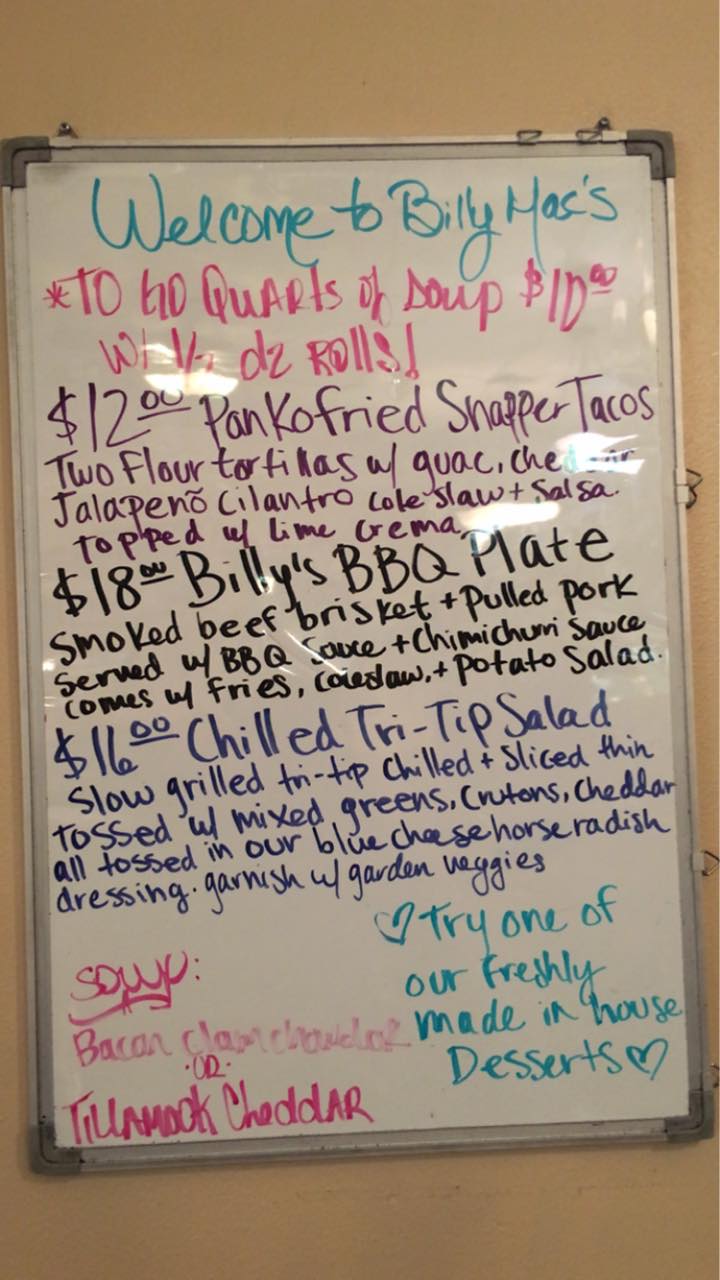 Welcome to Billy Mac's
*TO GO QUARTS of Soup $10.00
W/ 1/2 dz ROLLS!
$12.00 Panko fried Snapper Tacos
Two Flour tortillas w/ guac, cheddar
Jalapenõ Cilantro cole slaw + Salsa.
topped w/ lime crema
$18.00 Billy's BBQ Plate
Smoked beef brisket + Pulled pork
Served w/ BBQ Sauce + Chimichurri Sauce
comes w/ fries, coleslaw, + potato Salad.
$16.00 Chilled Tri-Tip Salad
Slow grilled tri-tip Chilled + Sliced thin
tossed w/ mixed greens, Crutons, Cheddar
all tossed in our blue cheese horse radish
dressing. garnish w/ garden veggies
♡ Try one of
our freshly
made in house
Desserts ♡
Soup:
Bacon Clam chowdar
OR
TILLAMOOK CheddAR